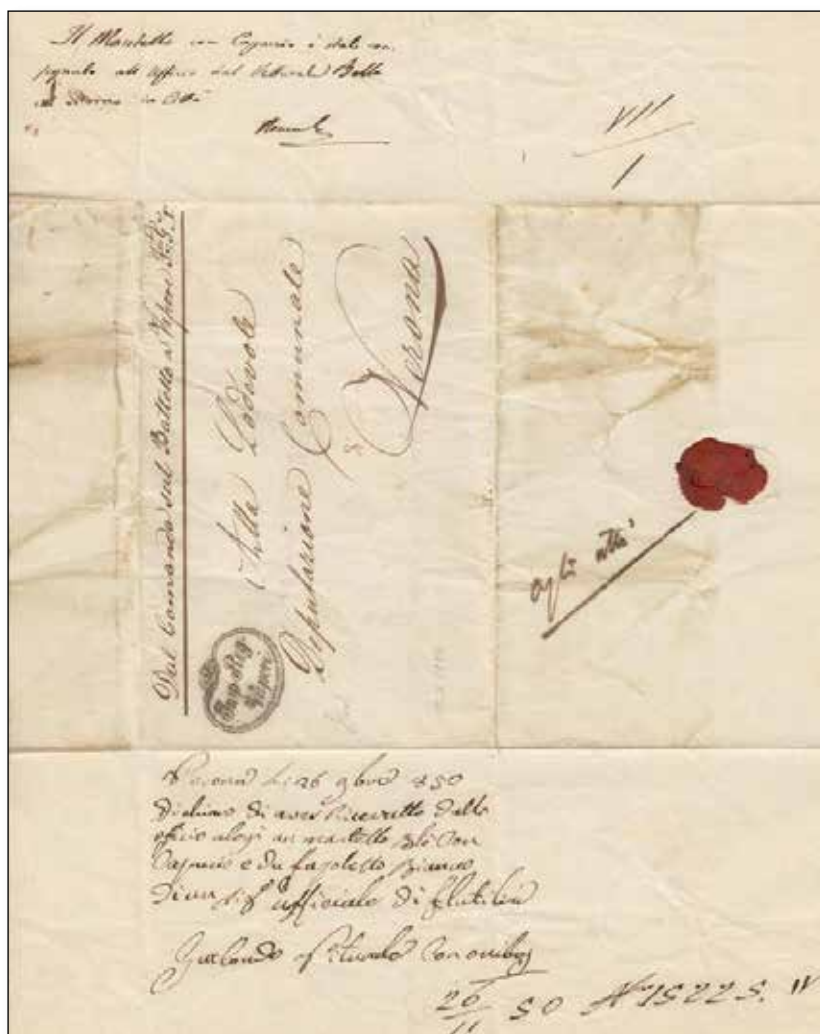 Il Mantello con Capuccio è stato con
segnato all'Officio dal Vetturale Bello
in Città
VII
1
Dal Comando sul Battello a Vapore
Alla Lodevole
Deputazione Comunale
Verona
Imp. Reg.
Vapori
agli atti
Verona li 26 9bre 850
Dichiaro di aver Riceuutto dallo
oficio alogi un mantello Blò Con
Capucio e du fazoletto Bianco
Di un Sigr ufficiale di flutilia
26 50 Nro 15225. IV
11